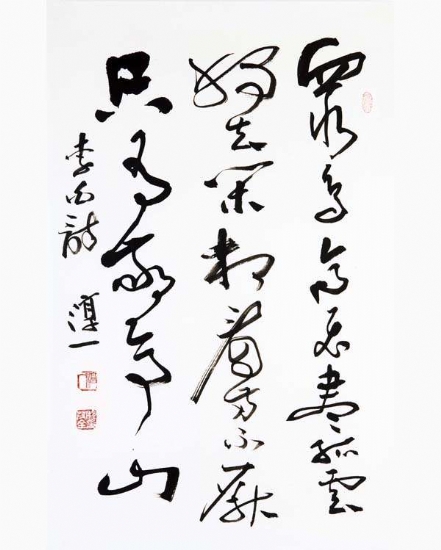 衆鳥高飛盡孤雲
獨去閑相看兩不厭
只有敬亭山
李白詩 淳一